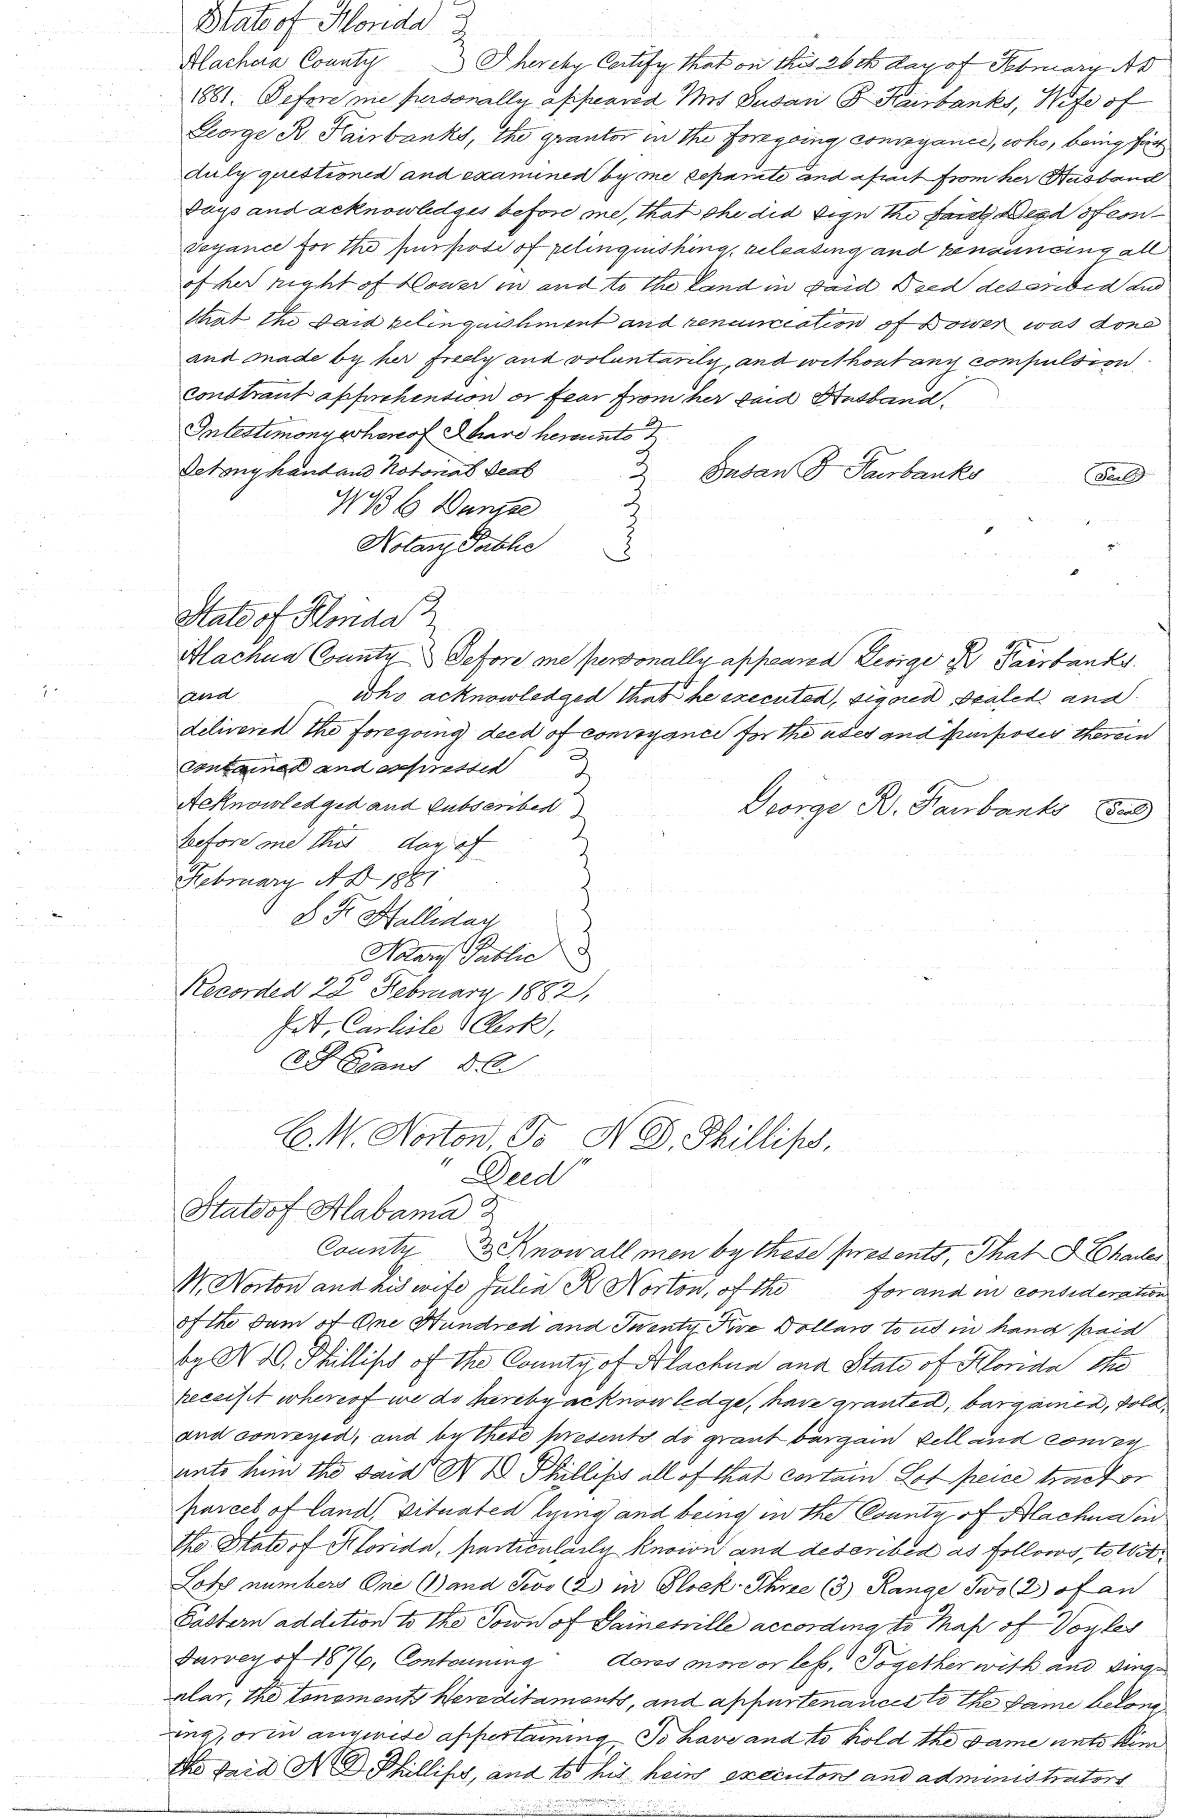 State of Florida
Alachua County I hereby Certify that on this 26th day of February AD
1881. Before me personally appeared Mrs Susan B Fairbanks, Wife of
George R Fairbanks, the grantor in the foregoing conveyance, who, being first
duly questioned and examined by me separate and apart from her Husband
says and acknowledges before me, that she did sign the said Deed of con-
veyance for the purpose of relinquishing, releasing and renouncing all
of her right of Dower in and to the Land in said Deed described and
that the said relinquishment and renunciation of Dower was done
and made by her freely and voluntarily, and without any compulsion
constraint apprehension or fear from her said Husband.
In testimony whereof I have hereunto
Set my hand and Notorial Seal Susan B Fairbanks Seal
W B C
Notary Public
State of Florida
Alachua County Before me personally appeared George R Fairbanks.
and who acknowledged that he executed, signed sealed and
delivered the foregoing deed of conveyance for the uses and purposes therein
contained and expressed
Acknowledged and subscribed George R. Fairbanks Seal
before me this day of
February AD 1881
S F Halliday
Notary Public
Recorded 22d February 1882,
J.A. Carlisle Clerk,
Evans D.C.
C. W. Norton, To N D. Phillips.
"Deed"
State of Alabama
County Know all men by these presents, That I Charles
W. Norton and his wife Julia R Norton, of the for and in consideration
of the sum of One Hundred and Twenty Five Dollars to us in hand paid
by N D. Phillips of the County of Alachua and State of Florida the
receipt whereof we do hereby acknowledge, have granted, bargained, sold,
and conveyed, and by these presents do grant bargain sell and convey
unto him the said N D Phillips all of that certain Lot peice tract or
parcel of land, situated lying and being in the County of Alachua in
the State of Florida, particularly known and described as follows, to Wit:
Lots numbers One (1) and Two (2) in Block Three (3) Range Two (2) of an
Eastern addition to the Town of Gainesville according to Map of Voyles
Survey of 1876, Containing Acres more or less, Together with and sing-
ular, the tenements Hereditaments, and appurtenances to the same belong
ing, or in anywise appertaining To have and to hold the same unto him
the said N D Phillips, and to his heirs executors and administrators